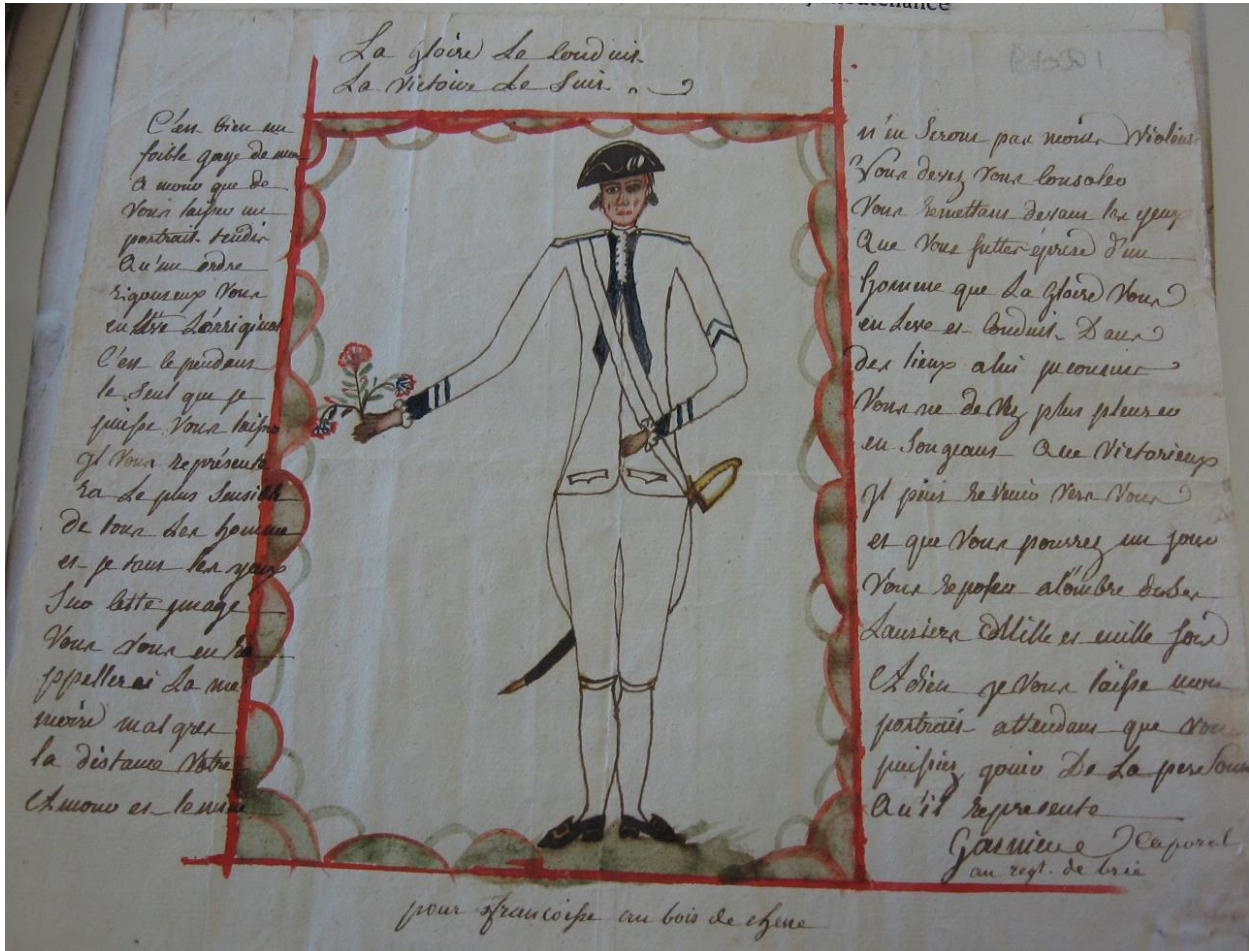 La Gloire Le Conduit
La Victoire Le Suit
C'est bien un
foible gage de mon
Amour que de
Vous laisser un
portrait tendis
Qu'un ordre
rigoureux Vous
en lève L'orriginal
C'est le pendant
le Seul que je
puisse Vous laisser
yl Vous représente
ra Le plus Sensible
de tous Les homme
et je tant les yeux
Sur Cette ymage
Vous Vous en Ra
ppellerai La me
moire malgres
la distance Votre
Amour et le mien
n'en Seront pas moins Violens
Vous devez Vous Consoler
Vous Remettant devant les yeux
Que Vous futtes éprise d'un
homme que La Gloire Vous
en Leve et Conduit Dans
des lieux a lui yncounus
Vous ne de Vez plus pleurer
en Songeant Que Victorieux
yl peut Revenir Vers Vous
et que Vous pourrez un jour
Vous Reposer a l'ombre de Ses
Lauriers Mille et mille fois
Adieu je Vous laisse mon
portrait attendant que Vous
puissiez jouir De La personne
Qu'il Represente
Caporal
au regt. de brie
pour françoise au bois de chene